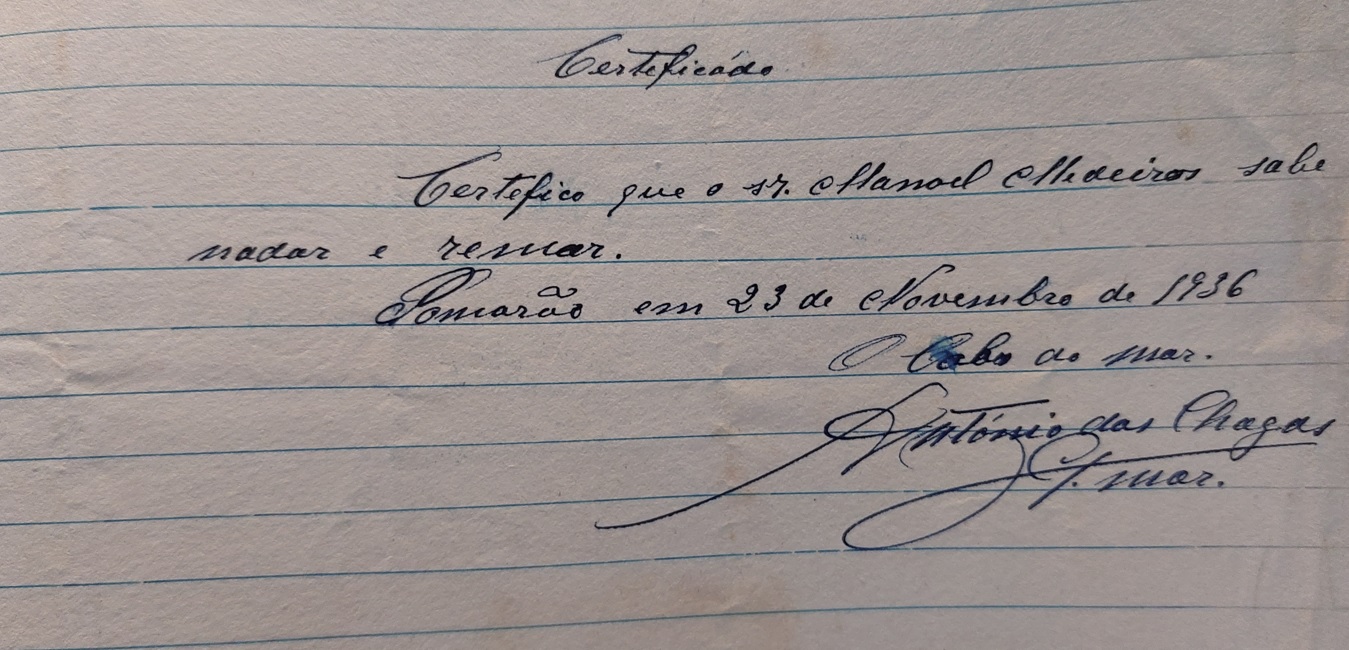 Certeficádo
Certefico que o sr. Manoel Medeiros sabe
nadar e remar.
Pomarão em 23 de Novembro de 1936
O Cabo do mar.
António das Chagas
mar.